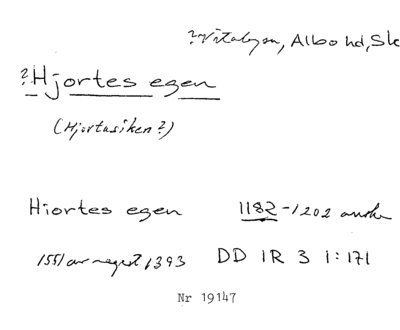 Albo hd, Sk
? Hjortes egen
(Hjortasiken?)
Hiortes egen 1182-1202 avskr
1551 av regest 1393 DD 1R 3 1:171
Nr 19147